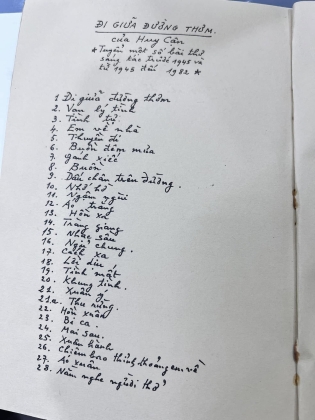 ĐI GIỮA ĐƯỜNG THƠM.
của Huy Cận
* Tuyển một số bài thơ
sáng tác trước 1945 và
từ 1945 đến 1982 *
1 Đi giữa đường thơm
2. Vạn lý tình
3. Tình tự
4. Em về nhà
5. Thuyền đi
6. Buồn đêm mưa
7. Gánh xiếc
8. Buồn
9. Dấu chân trên đường.
10. Nhớ hờ
11. Ngậm ngùi
12. Áo trắng
13. Hồn xa
14. Tràng giang
15. Nhạc sầu
16. Ngủ chung.
17. Cách xa
18. Lời dịu
19. Tình mất
20. Khung tình.
21. Xuân ý.
21.a. Thu rừng.
22. Hồn xuân
23. Bi ca.
24. Mai sau.
25. Xuân hành
26. Chiêm bao thỉnh thoảng em về
27. Áo xuân
28. Nằm nghe người thở